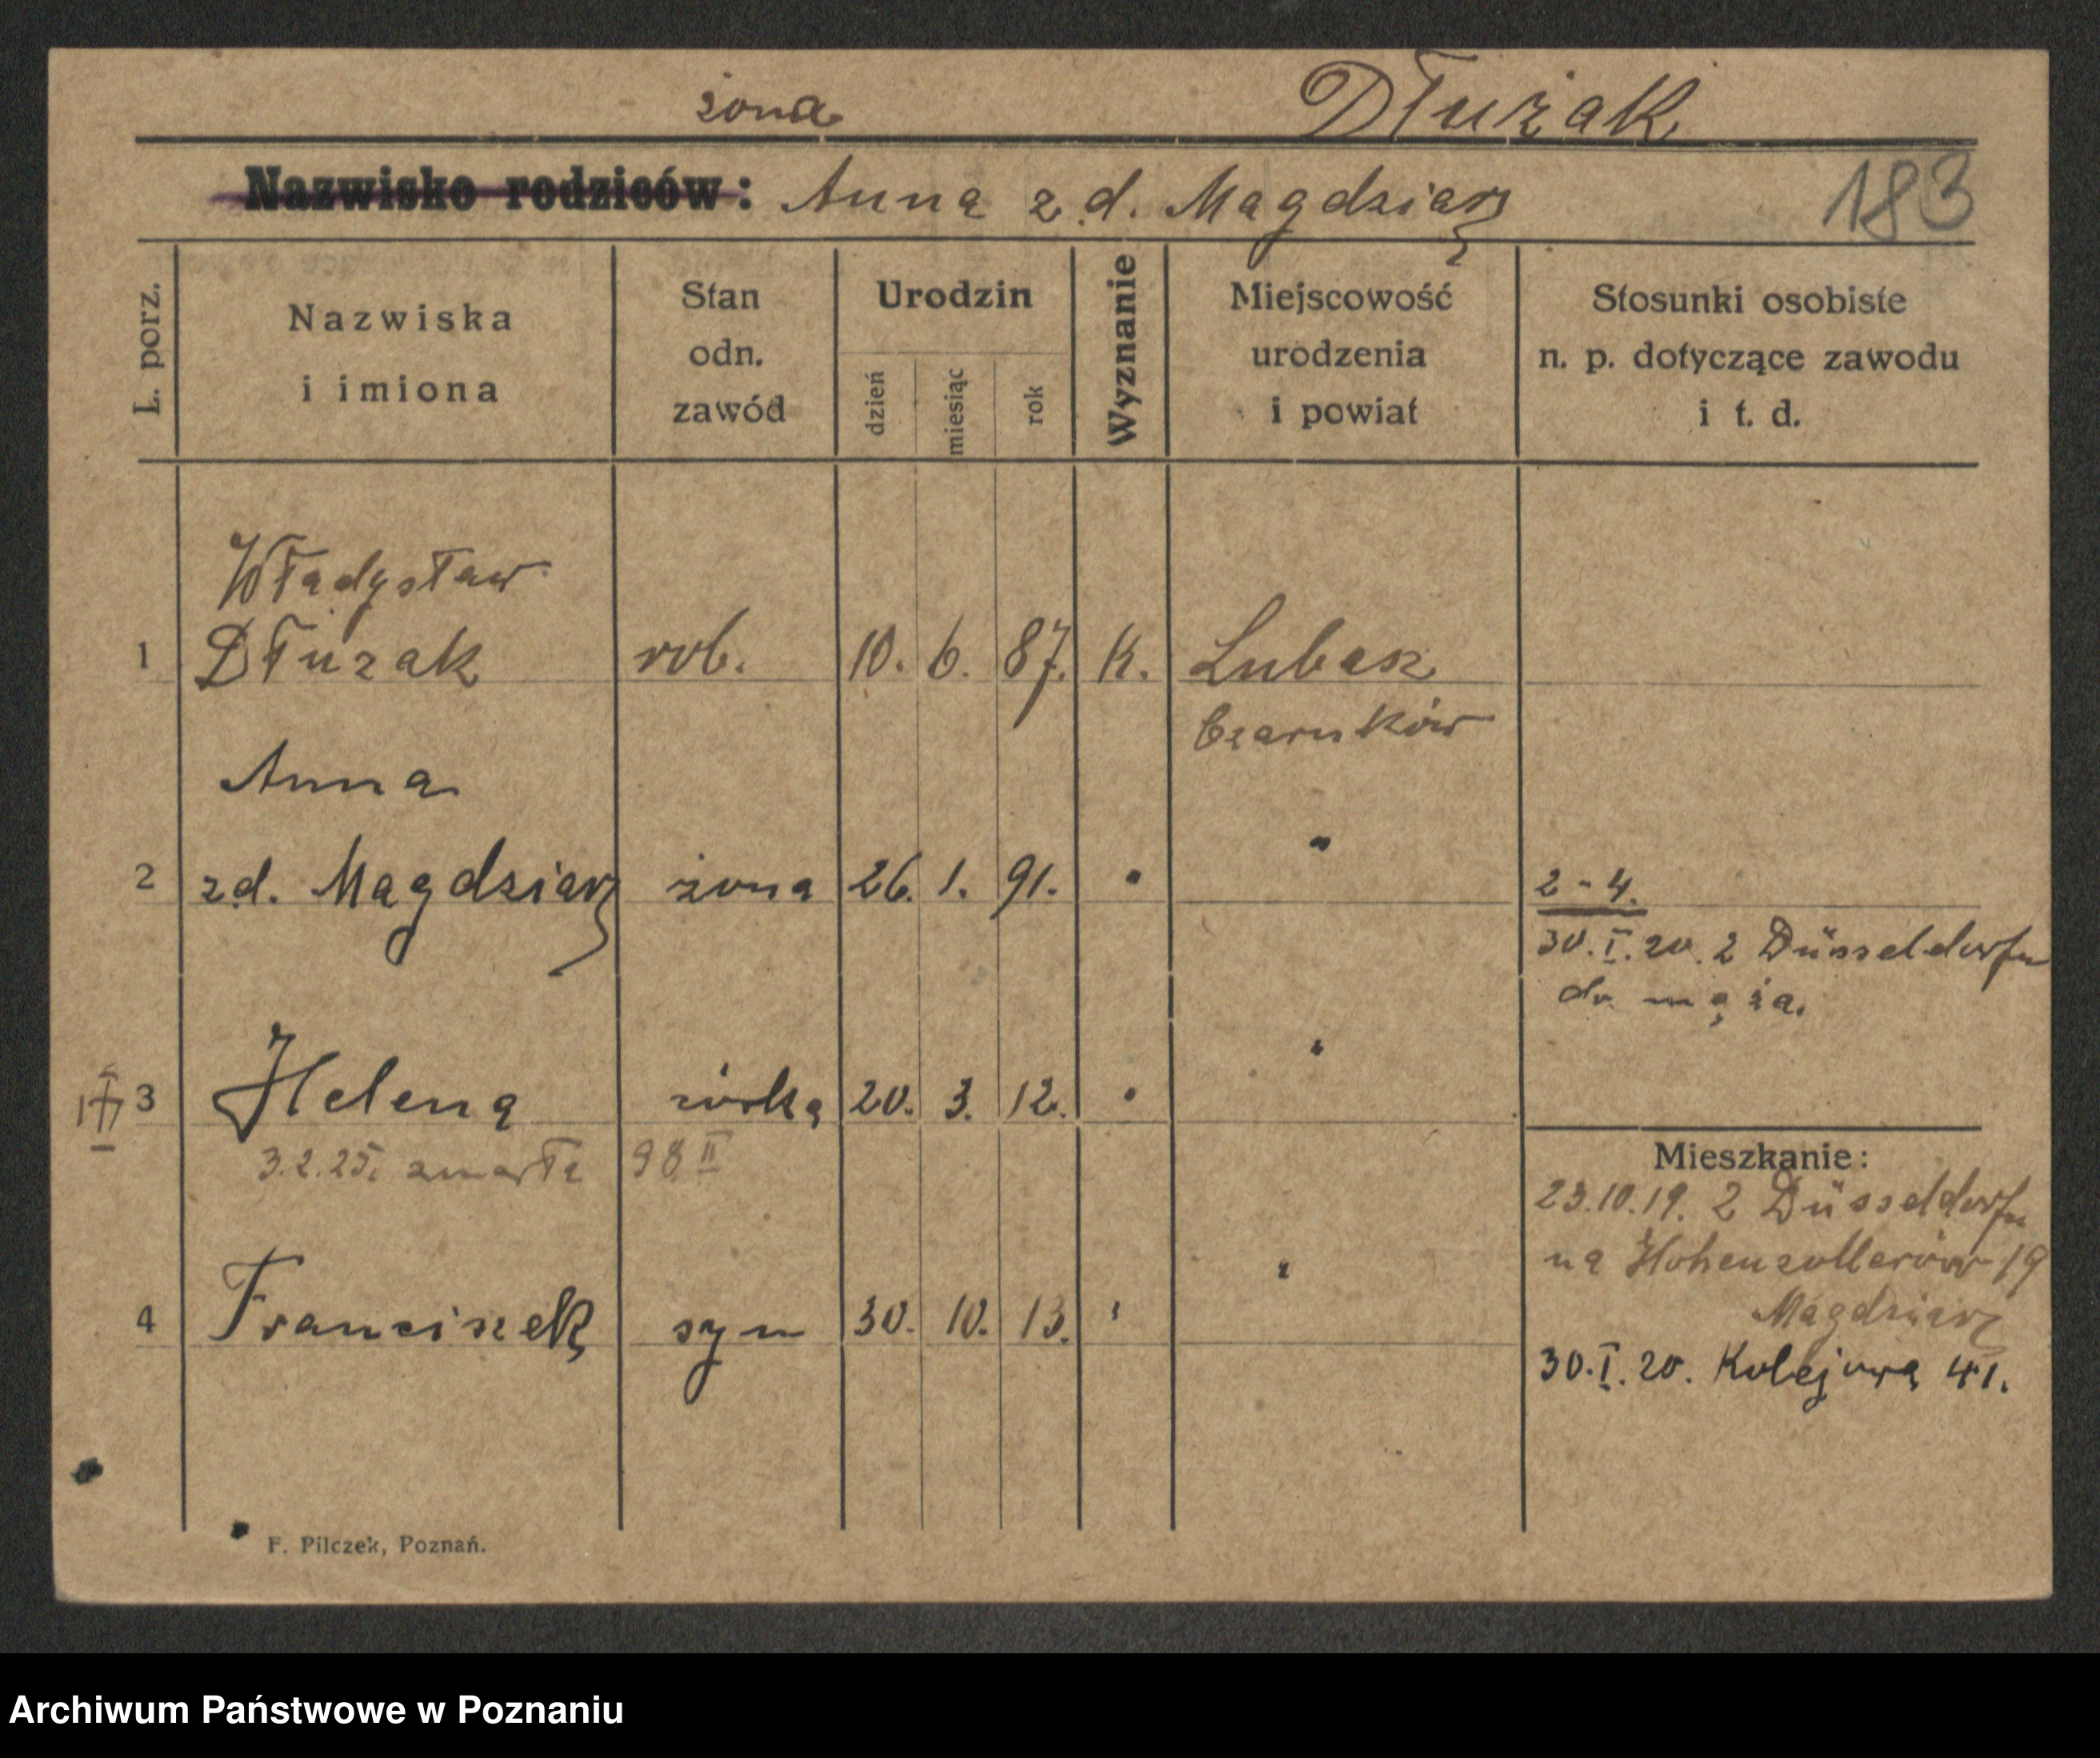 żona Dłużak
Nazwisko rodziców: Anna z d. Magdziarz 183
L. porz.
Nazwiska
i imiona
Stan
odn.
zawód
Urodzin
dzień
miesiąc
rok
Wyznanie
Miejscowość
urodzenia
i powiat
Stosunki osobiste
n. p. dotyczące zawodu
i t. d.
Władysław
1 Dłużak rob. 10. 6. 87. k. Lubasz
Czarnków
Anna "
2 z d. Magdziarz żona 26. 1. 91. " 2-4.
30.I.20. z Düsseldorfu
do męża.
"
3 Helena córka 20. 3. 12. "
3.2.25. zmarła 98 II
Mieszkanie:
23.10.19. z Düsseldorfu
na Hohenzollerów 19
Magdziarz
"
4 Franciszek syn 30. 10. 13. "
30.I.20. Kolejowa 41.
F. Pilczek, Poznań.
Archiwum Państwowe w Poznaniu